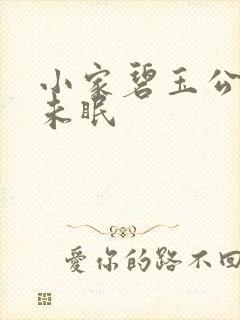 小家碧玉公
未眠
愛你的路不回